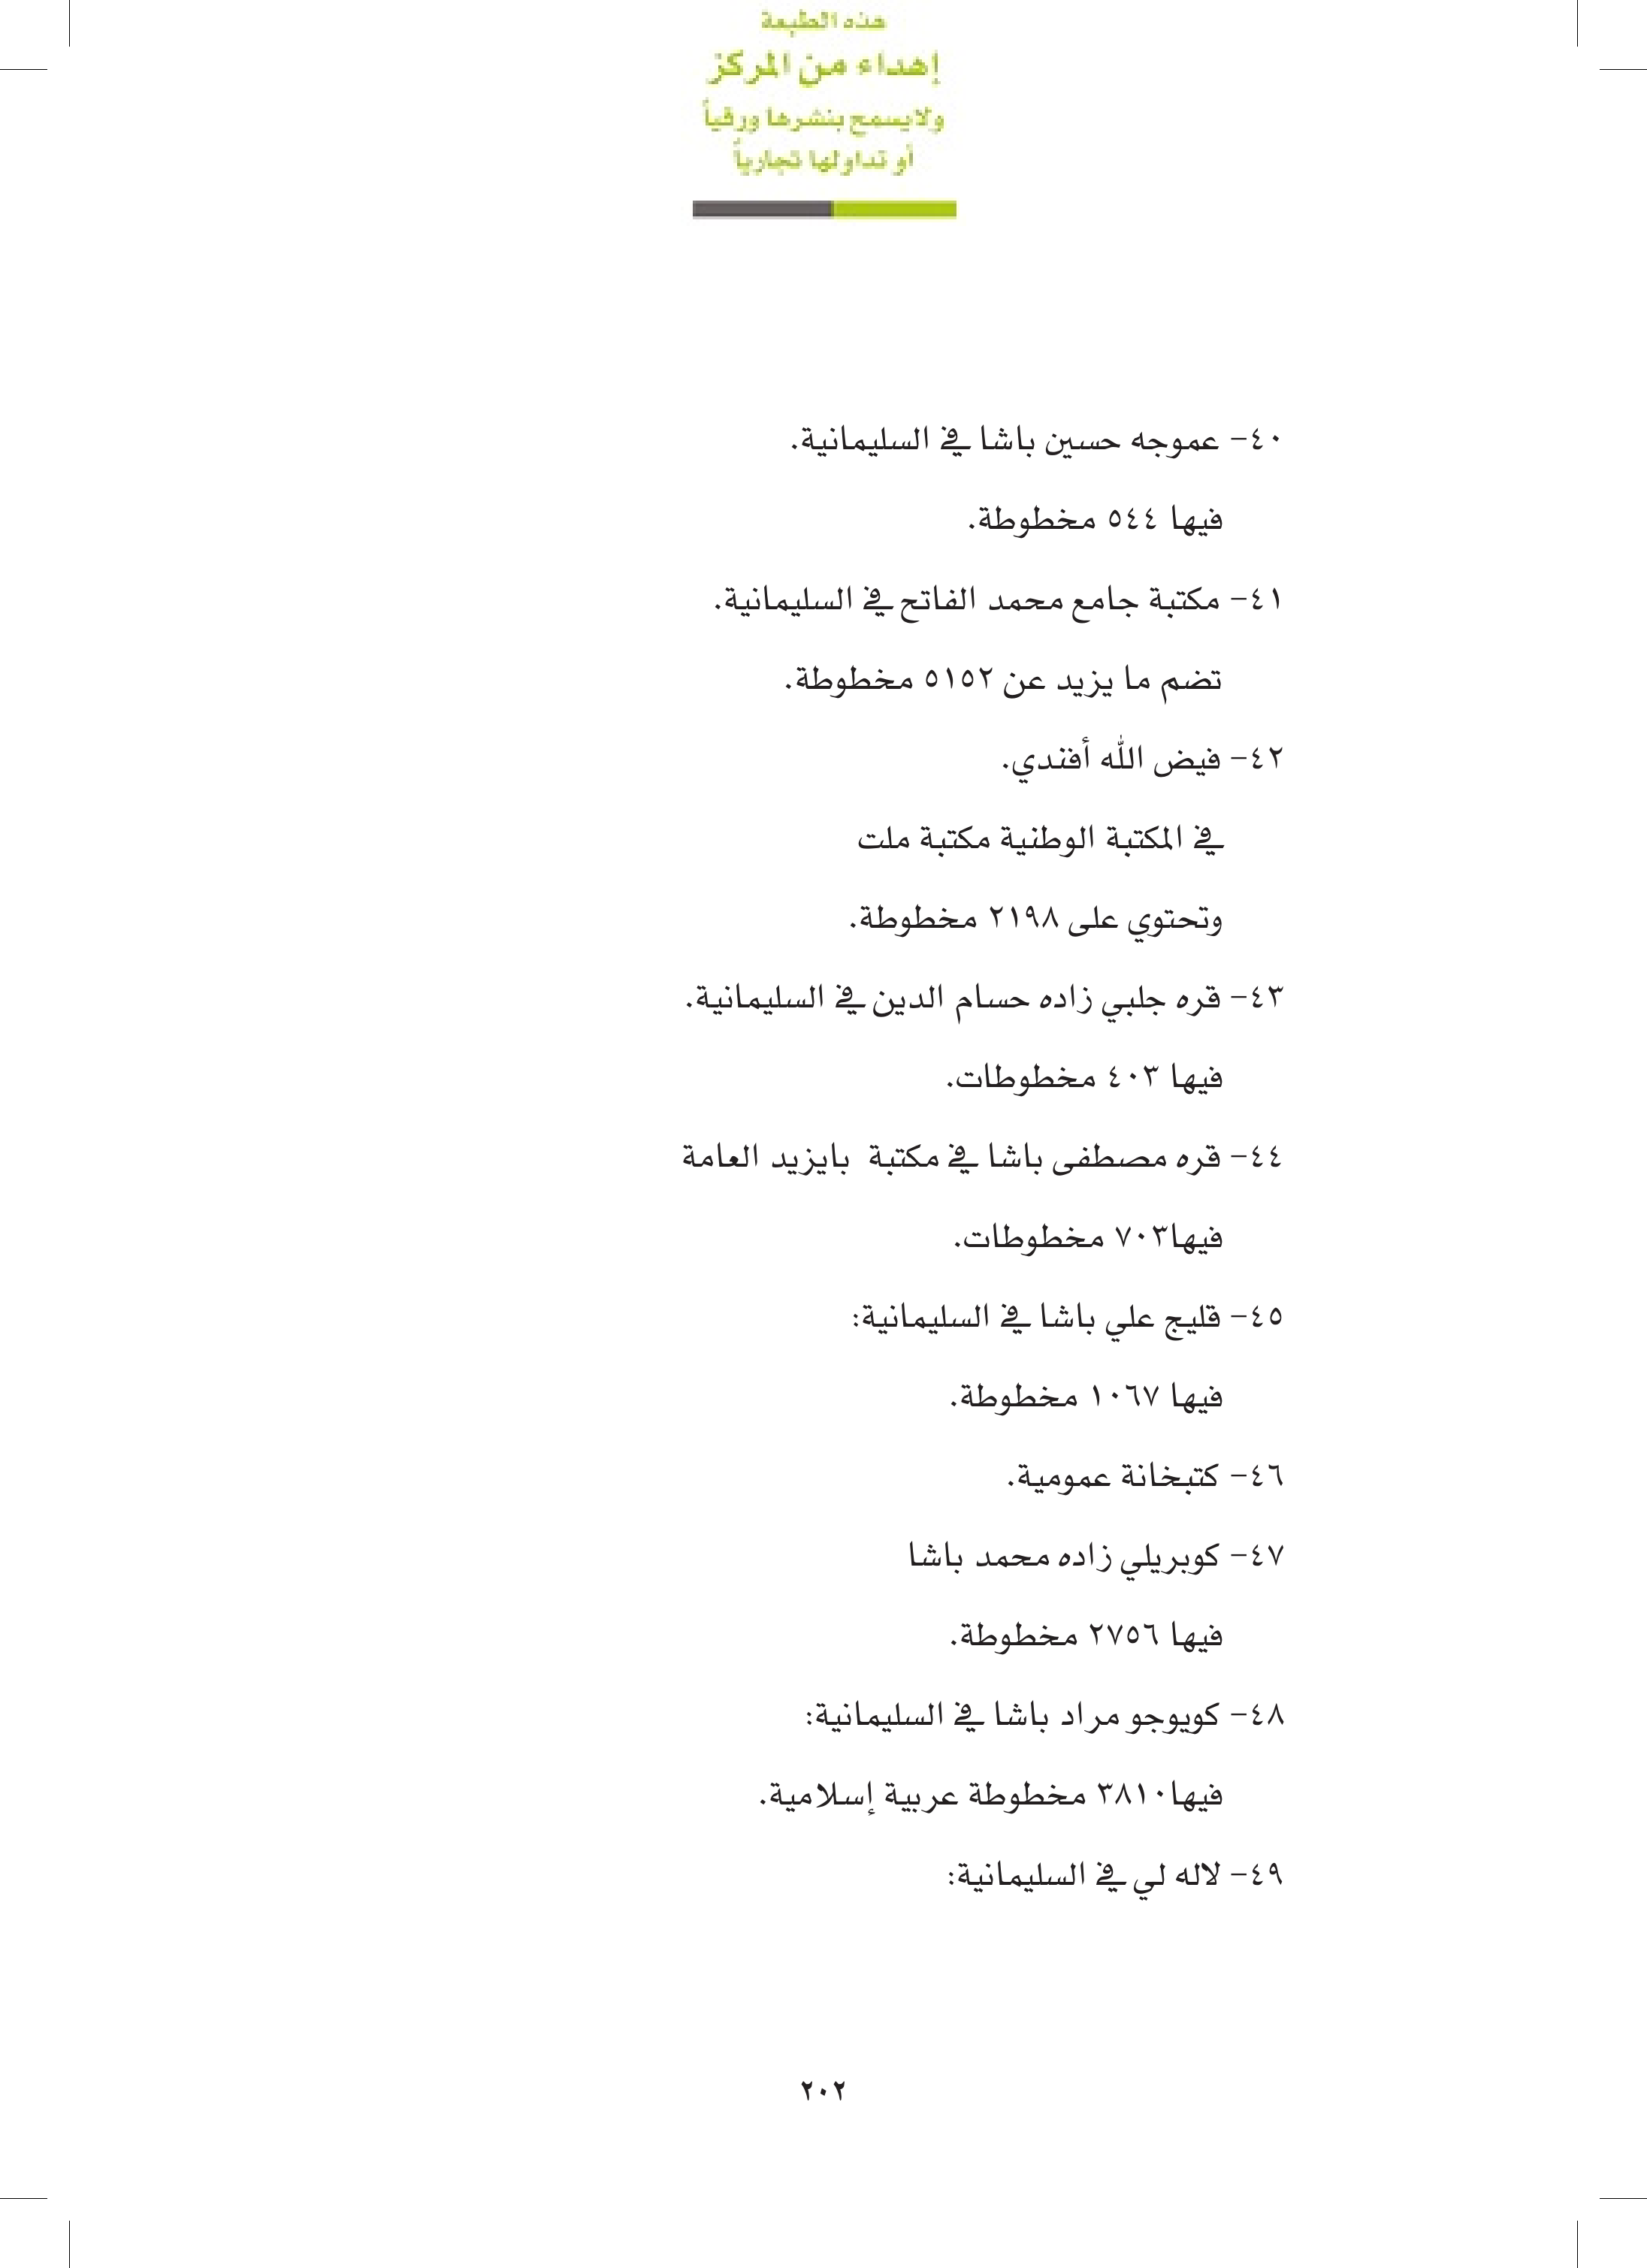 هذه الطبعة
إهداء من المركز
ولا يسمح بنشرها ورقياً
أو تداولها تجارياً
٤٠- عموجه حسين باشا في السليمانية.
فيها ٥٤٤ مخطوطة.
٤١- مكتبة جامع محمد الفاتح في السليمانية.
تضم ما يزيد عن ٥١٥٢ مخطوطة.
٤٢- فيض الله أفندي.
في المكتبة الوطنية مكتبة ملت
وتحتوي على ٢١٩٨ مخطوطة.
٤٣- قره جلبي زاده حسام الدين في السليمانية.
فيها ٤٠٣ مخطوطات.
٤٤- قره مصطفى باشا في مكتبة بايزيد العامة
فيها٧٠٣ مخطوطات.
٤٥- قليج علي باشا في السليمانية:
فيها ١٠٦٧ مخطوطة.
٤٦- كتبخانة عمومية.
٤٧- كوبريلي زاده محمد باشا
فيها ٢٧٥٦ مخطوطة.
٤٨- كويوجو مراد باشا في السليمانية:
فيها٣٨١٠ مخطوطة عربية إسلامية.
٤٩- لاله لي في السليمانية:
٢٠٢